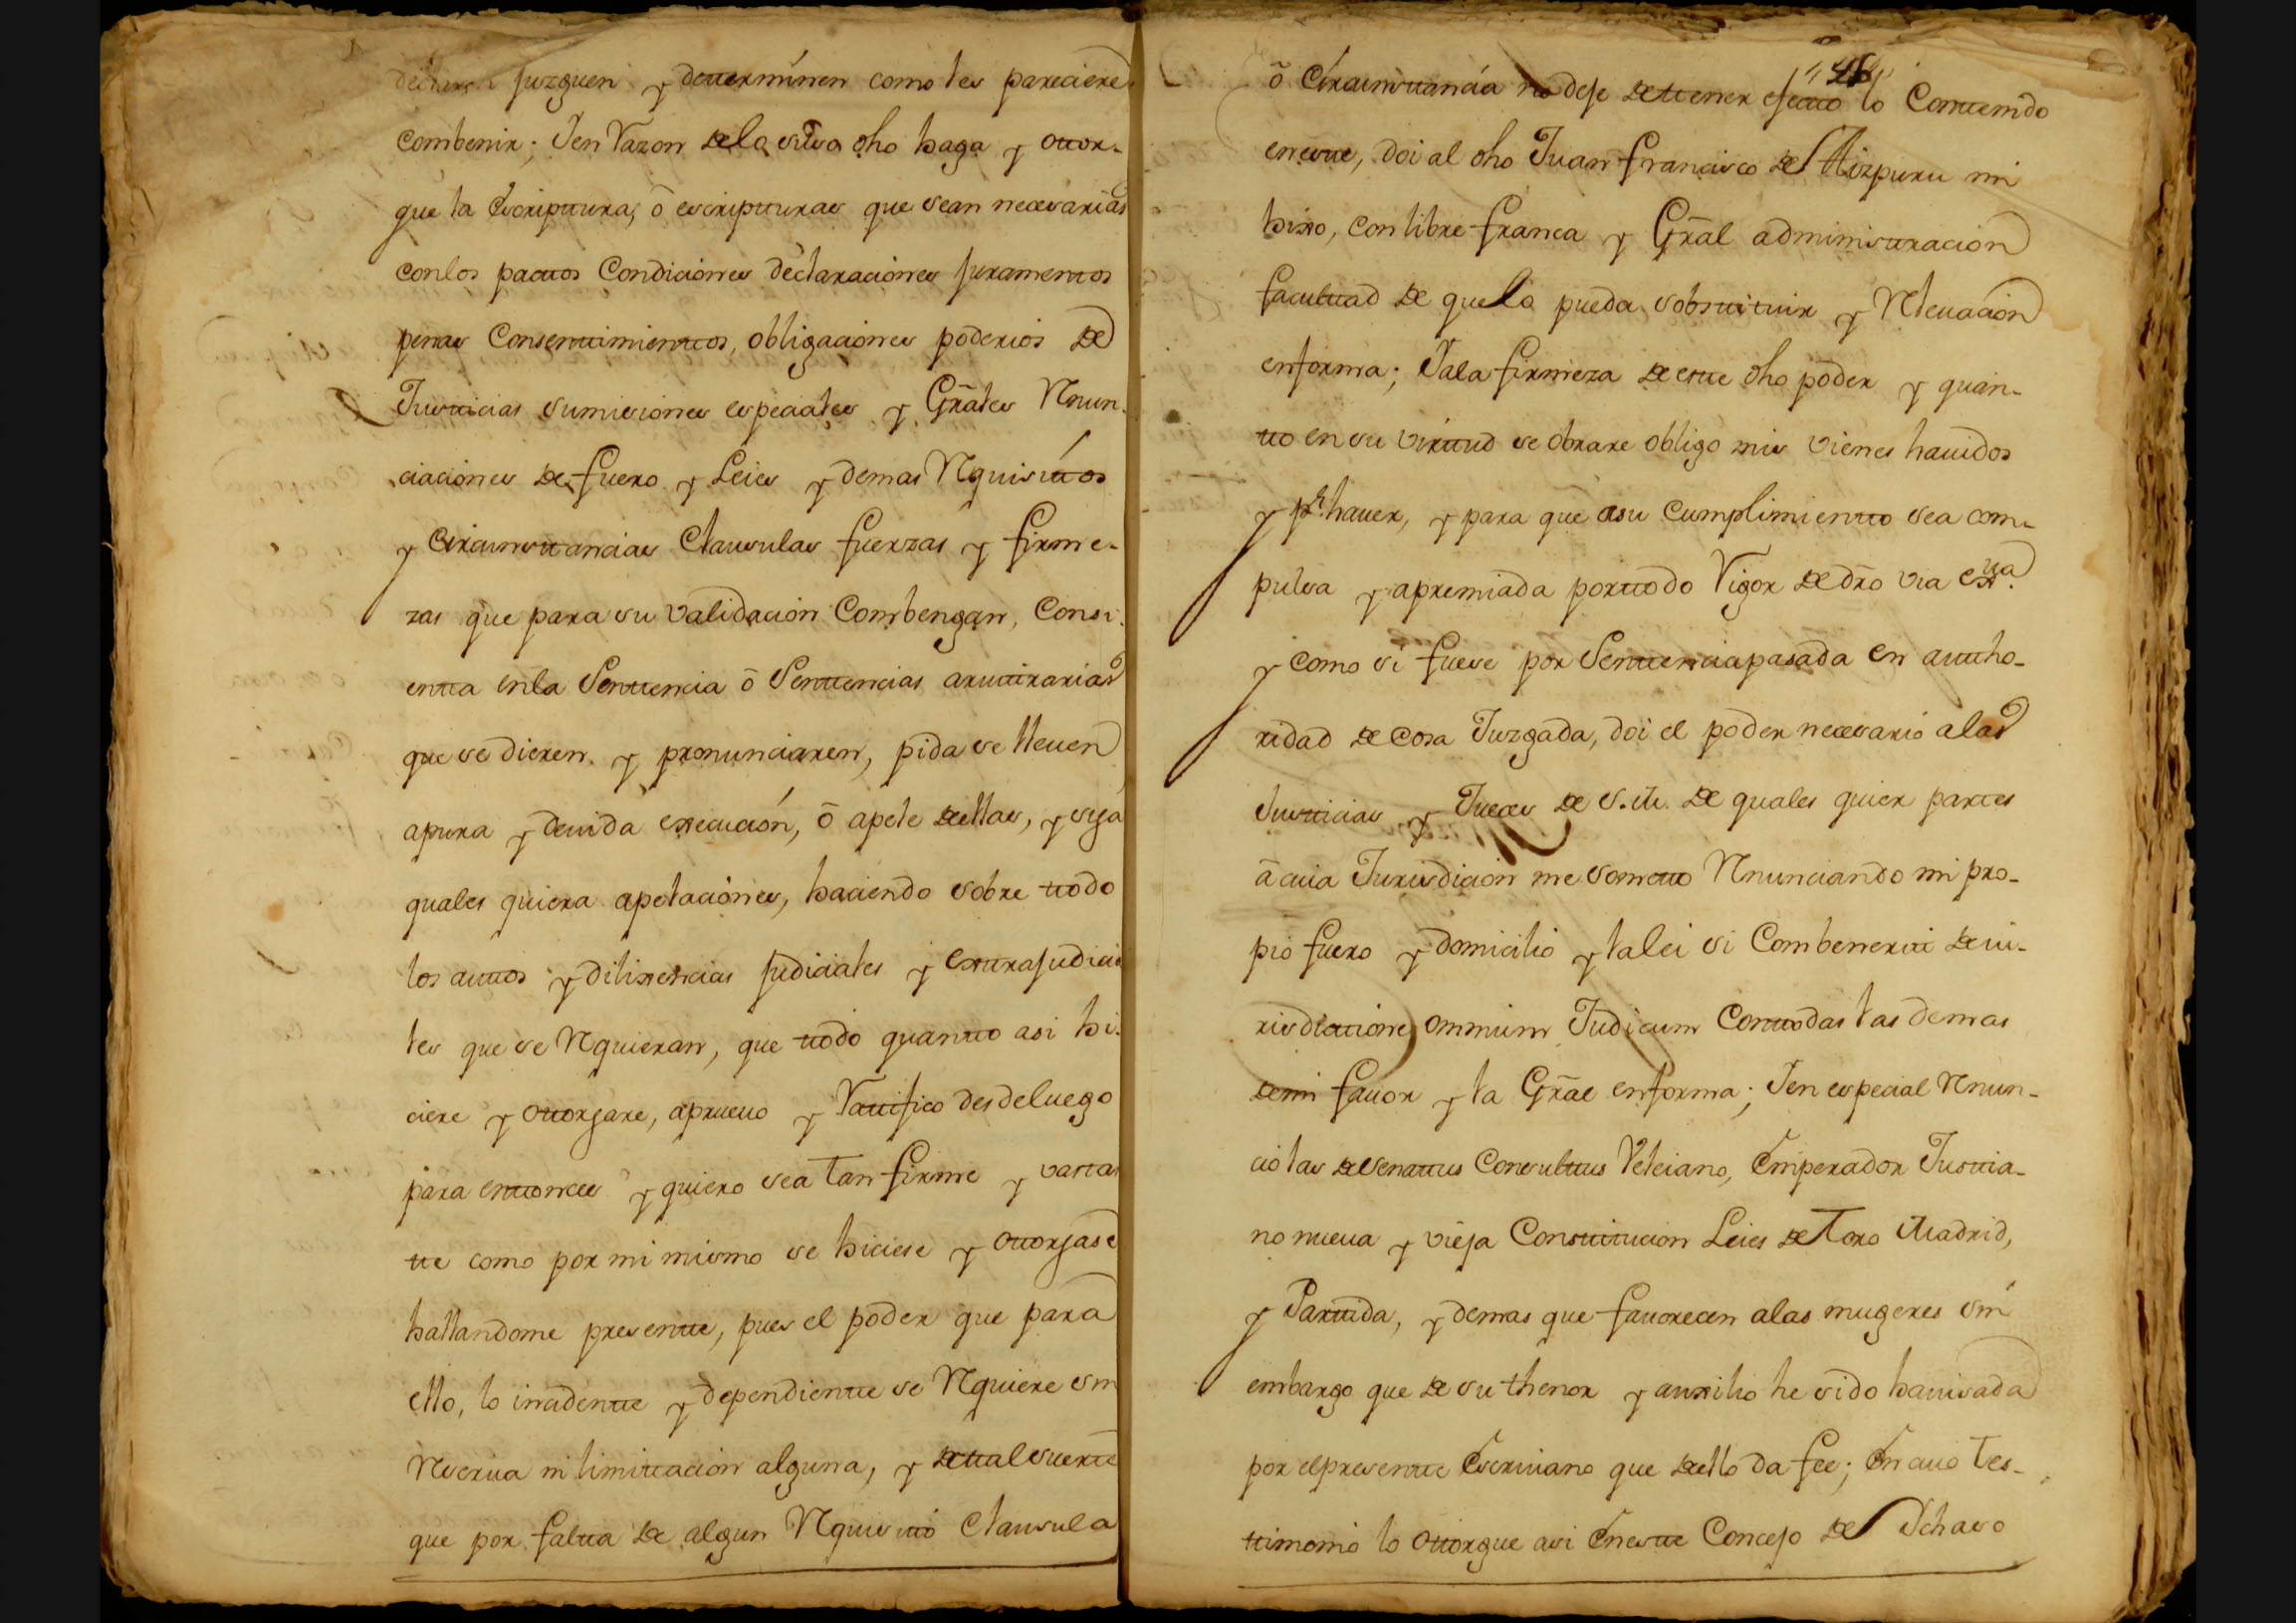 juzguen y dettermínen como les pareciere
combenir; Yen Razon dela susso dho haga y ottor-
gue la Escripttura, ô escriptturas que sean necesarias
conlos pacttos Condiciónes declaraciónes juramenttos
penas Consenttimienttos, obligaciónes poderios de
Justticias sumisiones especiales y Grāles Rnun-
ciaciónes de fuero y Leies y demas Rquisíttos
y Circunsttancias Clausulas fuerzas y firme-
zas que para su validación Combengan, Consi-
entta enla Senttencia ô Senttencias arvittrarias
que se dieren y pronunciaren, pida se lleven
apura y devida execución, ô apele dellas, y siga
quales quiera apelaciónes, haciendo sobre ttodo
los auttos y dilixencias judiciales y exttrajudicia
les que se Rquieran, que ttodo quantto asi hi-
ciere y ottorgare, apruevo y Rattifico desdeluego
para enttonces y quiero sea tan firme y vastan
tte como por mi mismo se hiciese y ottorgase
hallandome presentte, pues el poder que para
ello, lo incidentte y dependientte se Rquiere sin
Rserva ni limittación alguna, y dettal suertte
que por faltta de algun Rquisitto Clausula
ô Circunsttancia no deje dettener efectto lo Conttenido
enestte, doi al dho Juan francisco de Aizpuru mi
hixo, con libre franca y Grāl administtración
facultad de quela pueda sobsttittuir y Rlevación
enforma; Yala firmeza de estte dho poder y quan-
tto en su virttud se obrare obligo mis vienes havidos
y pr. haver, y para que asu cumplimientto sea com-
pulsa y apremiada porttodo Vigor de dro via exva.
y como si fuese por Senttenciapasada en autto-
ridad de cosa Juzgada, doi el poder necesario alas
Justticias y Jueces de S.M. de quales quier parttes
â cuia Jurisdición me sometto Rnunciando mi pro-
pio fuero y domicilio y la lei si Combeneritt deiu-
risdicttione omnium Judicum Conttodas las demas
demi favor y la Grāl enforma; Yen especial Rnun-
cio las delsenattus Consulttus Veleiano, Emperador Justtia-
no nueva y vieja Consttittucion Leies de Toro Madrid,
y Parttida, y demas que favorecen alas mugeres sin
embargo que de su thenor y auxilio he sido havisada
por elpresentte Escrivano que dello da fee; En cuio tes-
ttimonio lo ottorgue asi Enestte Concejo de Ichaso